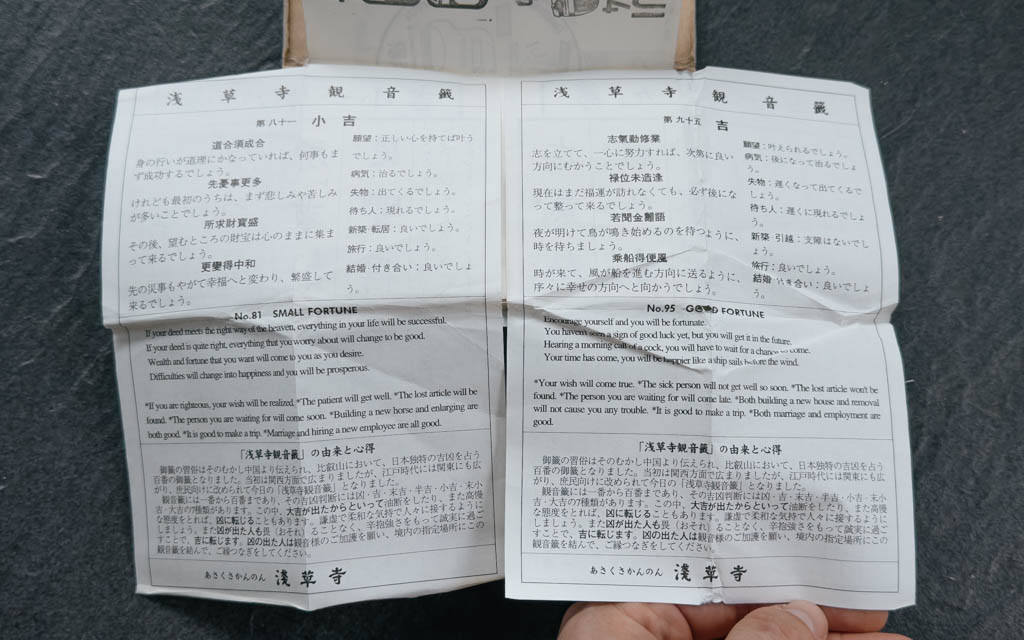 浅草寺観音籤
第八十一 小吉
道合須成合
身の行いが道理にかなっていれば、何事もま
ず成功するでしょう。
先憂事更多
けれども最初のうちは、まず悲しみや苦しみ
が多いことでしょう。
所求財寶盛
その後、望むところの財宝は心のままに集ま
って来るでしょう。
更變得中和
先の災事もやがて幸福へと変わり、繁盛して
来るでしょう。
願望：正しい心を持てば叶う
でしょう。
病気：治るでしょう。
失物：出てくるでしょう。
待ち人：現れるでしょう。
新築・転居：良いでしょう。
旅行：良いでしょう。
結婚・付き合い：良いでしょ
う。
No.81 SMALL FORTUNE
If your deed meets the right way of the heaven, everything in your life will be successful.
If your deed is quite right, everything that you worry about will change to be good.
Wealth and fortune that you want will come to you as you desire.
Difficulties will change into happiness and you will be prosperous.
*If you are righteous, your wish will be realized. *The patient will get well. *The lost article will be
found. *The person you are waiting for will come soon. *Building a new horse and enlarging are
both good. *It is good to make a trip. *Marriage and hiring a new employee are all good.
「浅草寺観音籤」の由来と心得
御籤の習俗はそのむかし中国より伝えられ、比叡山において、日本独特の吉凶を占う
百番の御籤となりました。当初は関西方面で広まりましたが、江戸時代には関東にも広
がり、庶民向けに改められて今日の「浅草寺観音籤」となりました。
観音籤には一番から百番まであり、その吉凶判断には凶・吉・末吉・半吉・小吉・末小
吉・大吉の7種類があります。この中、大吉が出たからといって油断をしたり、また高慢
な態度をとれば、凶に転じることもあります。謙虚で柔和な気持で人々に接するように
しましょう。また凶が出た人も畏（おそれ）ることなく、辛抱強さをもって誠実に過ご
すことで、吉に転じます。凶の出た人は観音様のご加護を願い、境内の指定場所にこの
観音籤を結んで、ご縁つなぎをしてください。
あさくさかんのん 淺草寺
浅草寺観音籤
第九十五 吉
志氣勤修業
志を立てて、一心に努力すれば、次第に良い
方向にむかうことでしょう。
禄位未造逢
現在はまだ福運が訪れなくても、必ず後にな
って整って来るでしょう。
若聞金雞語
夜が明けて鳥が鳴き始めるのを待つように、
時を待ちましょう。
乗船得便風
時が来て、風が船を進む方向に送るように、
序々に幸せの方向へと向かうでしょう。
願望：叶えられるでしょう。
病気：後になって治るでしょ
う。
失物：遅くなって出てくるで
しょう。
待ち人：遅くに現れるでしょ
う。
新築・引越：支障はないでし
ょう。
旅行：良いでしょう。
結婚・付き合い：良いでしょ
う。
No.95 GOOD FORTUNE
Encourage yourself and you will be fortunate.
You haven't seen a sign of good luck yet, but you will get it in the future.
Hearing a morning call of a cock, you will have to wait for a chance to come.
Your time has come, you will be happier like a ship sails before the wind.
*Your wish will come true. *The sick person will not get well so soon. *The lost article won't be
found. *The person you are waiting for will come late. *Both building a new house and removal
will not cause you any trouble. *It is good to make a trip. *Both marriage and employment are
good.
「浅草寺観音籤」の由来と心得
御籤の習俗はそのむかし中国より伝えられ、比叡山において、日本独特の吉凶を占う
百番の御籤となりました。当初は関西方面で広まりましたが、江戸時代には関東にも広
がり、庶民向けに改められて今日の「浅草寺観音籤」となりました。
観音籤には一番から百番まであり、その吉凶判断には凶・吉・末吉・半吉・小吉・末小
吉・大吉の7種類があります。この中、大吉が出たからといって油断をしたり、また高慢
な態度をとれば、凶に転じることもあります。謙虚で柔和な気持で人々に接するように
しましょう。また凶が出た人も畏（おそれ）ることなく、辛抱強さをもって誠実に過ご
すことで、吉に転じます。凶の出た人は観音様のご加護を願い、境内の指定場所にこの
観音籤を結んで、ご縁つなぎをしてください。
あさくさかんのん 淺草寺